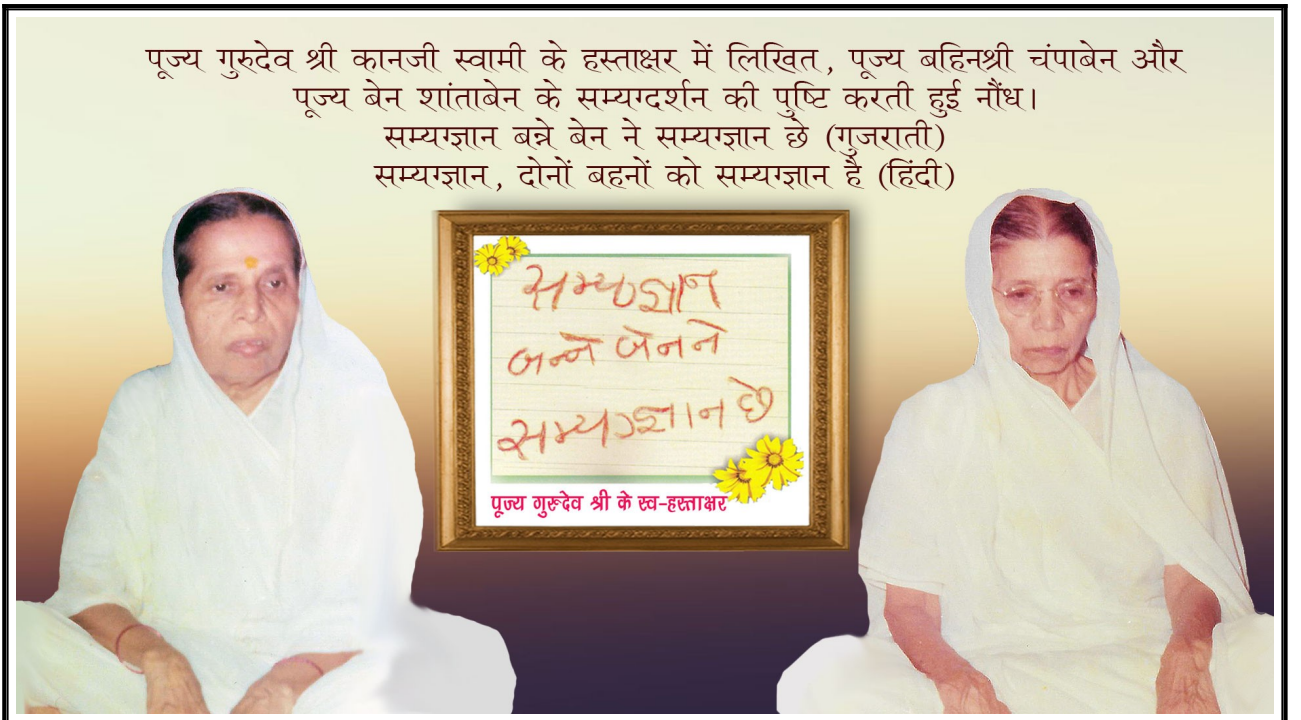 पूज्य गुरुदेव श्री कानजी स्वामी के हस्ताक्षर में लिखित, पूज्य बहिनश्री चंपाबेन और
पूज्य बेन शांताबेन के सम्यग्दर्शन की पुष्टि करती हुई नौंध।
सम्यग्ज्ञान बन्ने बेन ने सम्यग्ज्ञान छे (गुजराती)
सम्यग्ज्ञान, दोनों बहनों को सम्यग्ज्ञान है (हिंदी)
सम्यग्ज्ञान
बन्ने बेन ने
सम्यग्ज्ञान छे
पूज्य गुरूदेव श्री के स्व-हस्ताक्षर